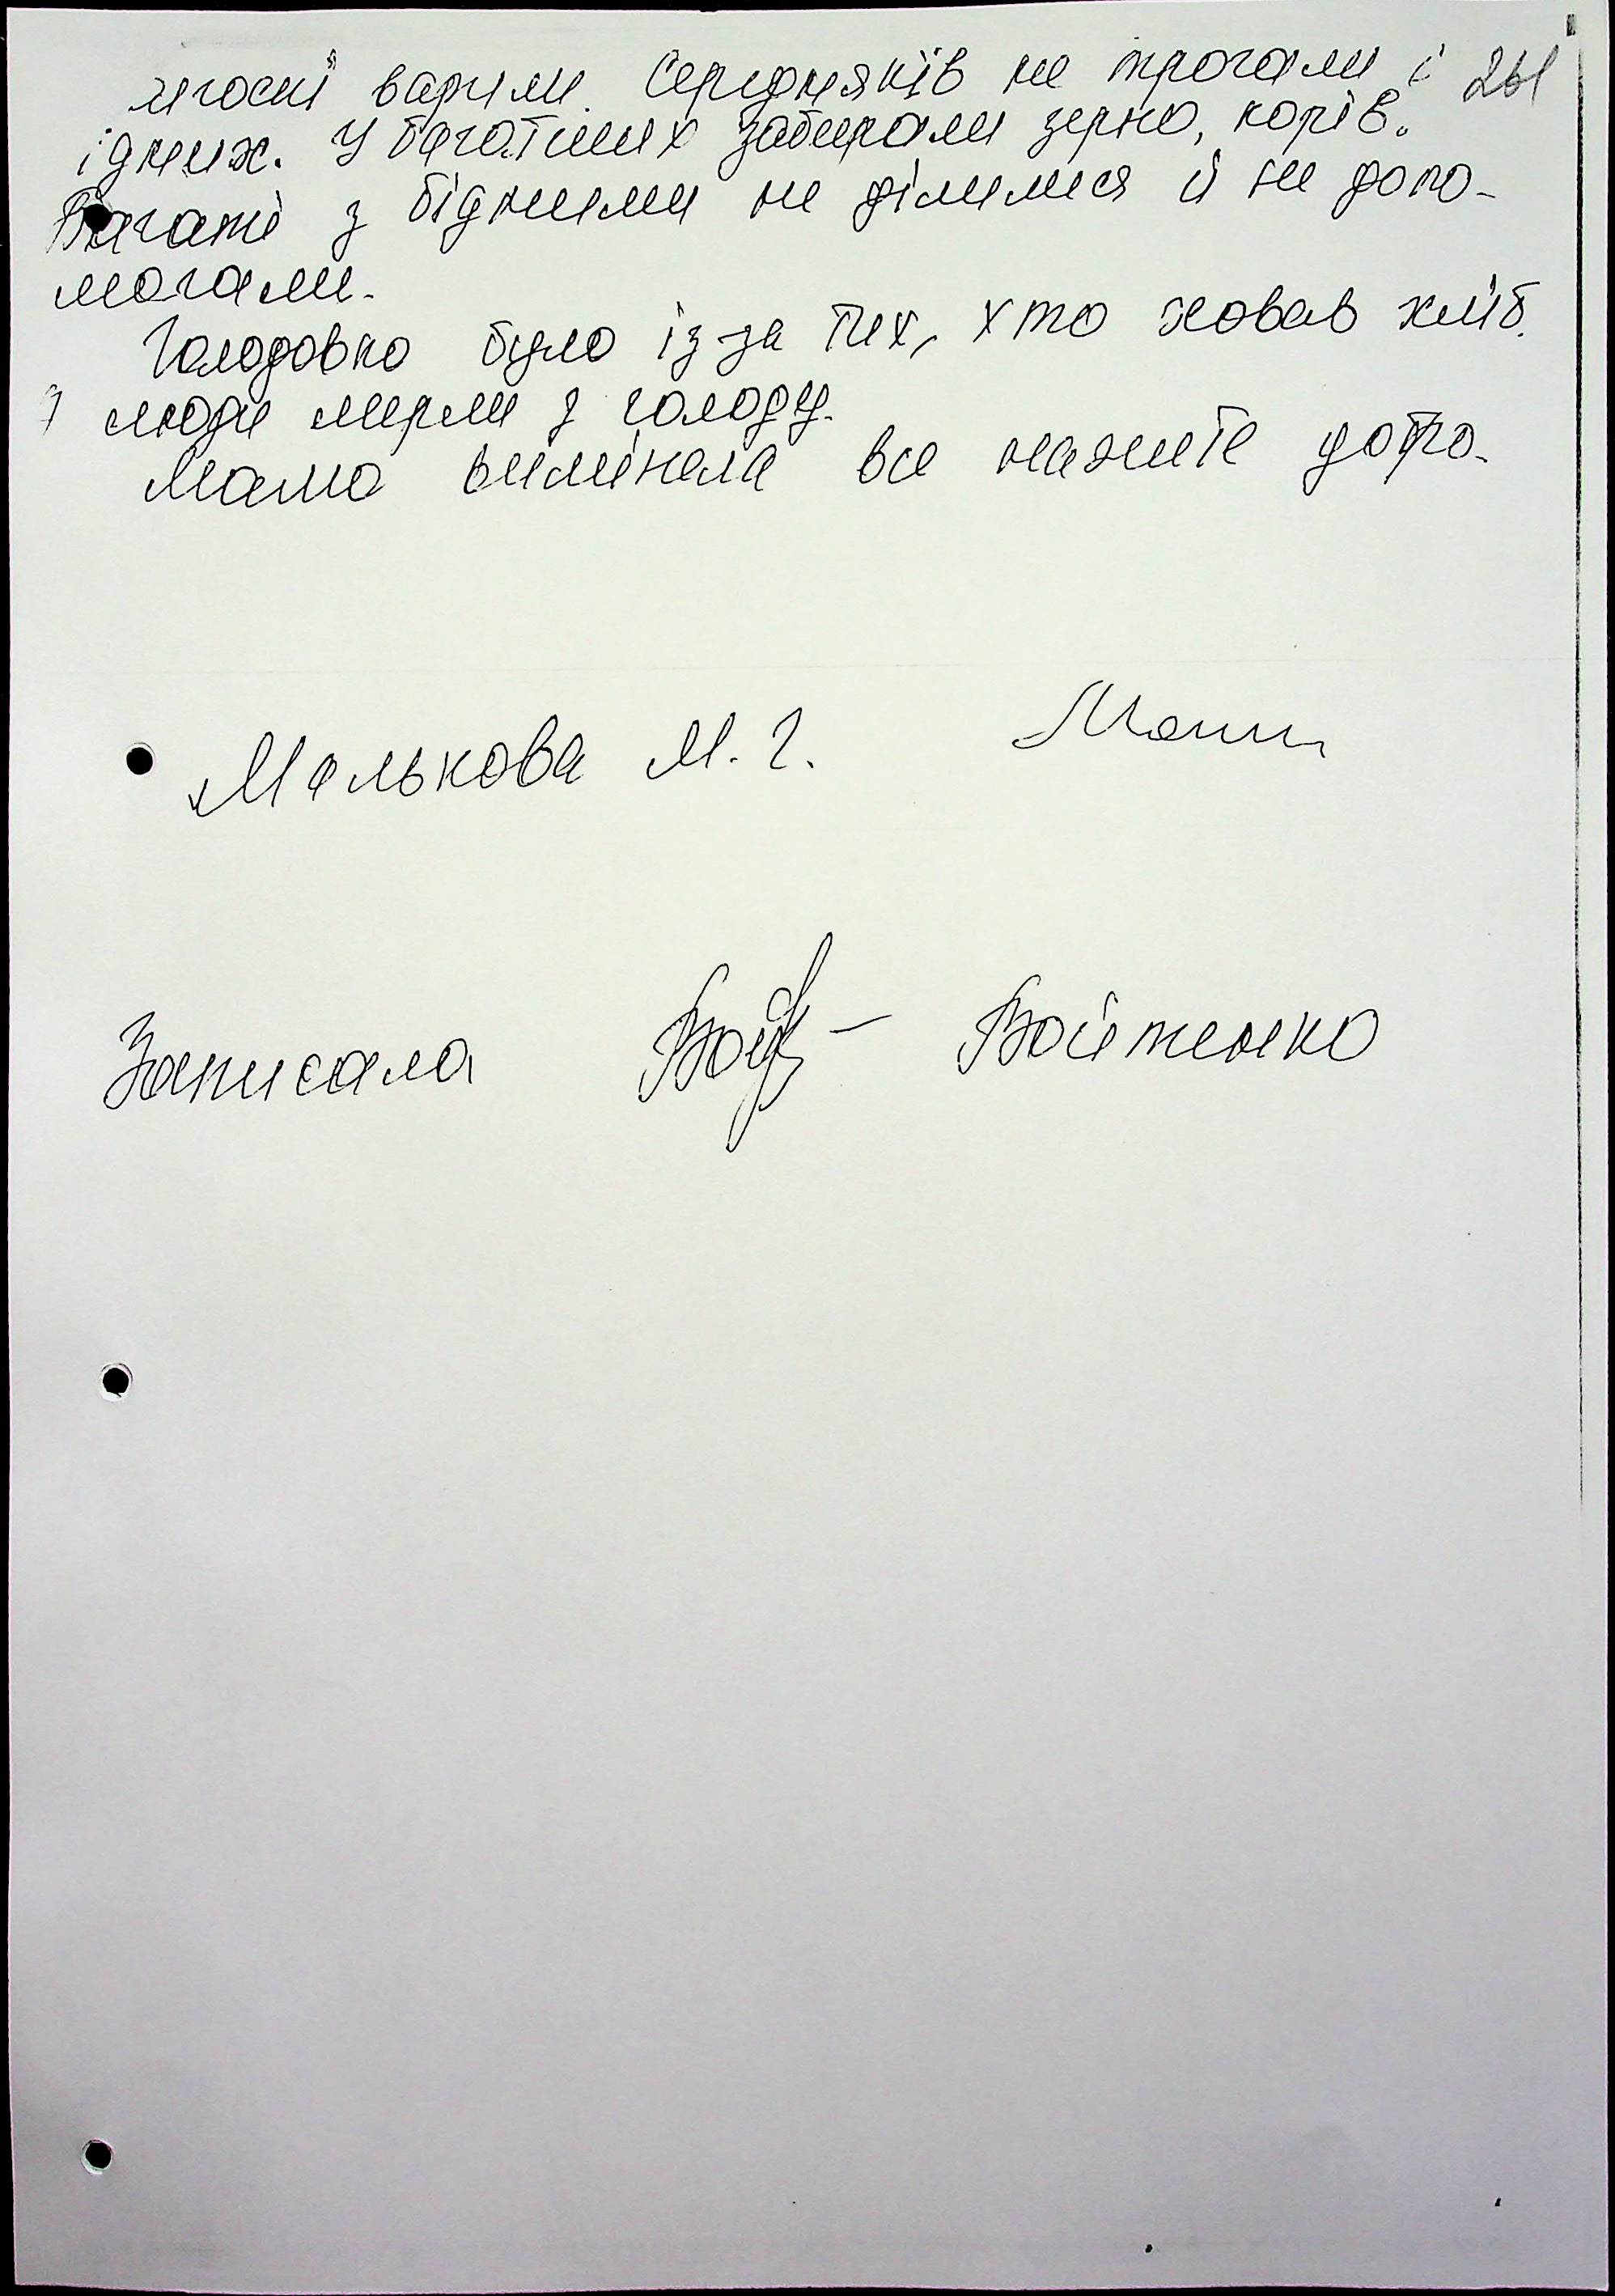 варили. Середняків не трогали і 261
ідних. У багатших забирали зерно, корів.
Багаті з бідними не ділилися й не допо-
могали.
Голодовка було із-за тих, хто ховав хліб.
І люди мерли з голоду.
Мама виміняла все нажите
Малькова М. Г.
Записала Войтенко